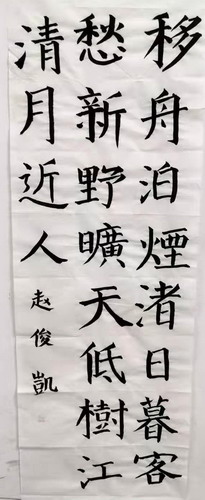 移舟泊煙渚日暮客
愁新野曠天低樹江
清月近人
赵俊凱